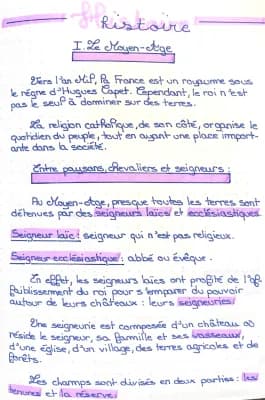 Histoire
I. Le Moyen-Age
Vers l'an Mil, la France est un royaume sous
le règne d'Hugues Capet. Cependant, le roi n'est
pas le seul à dominer sur des terres.
La religion catholique, de son côté, organise le
quotidien du peuple, tout en ayant une place import-
ante dans la société.
Entre paysans, chevaliers et seigneurs :
Au Moyen-Age, presque toutes les terres sont
détenues par des seigneurs laïcs et ecclésiastiques.
Seigneur laïc : seigneur qui n'est pas religieux.
Seigneur ecclésiastique : abbé ou évêque.
En effet, les seigneurs laïcs ont profité de l'af-
faiblissement du roi pour s'emparer du pouvoir
autour de leurs châteaux : leurs seigneuries.
Une seigneurie est composée d'un château où
réside le seigneur, sa famille et ses vasseaux,
d'une église, d'un village, des terres agricoles et de
forêts.
Les champs sont divisés en deux parties : les
tenures et la réserve.